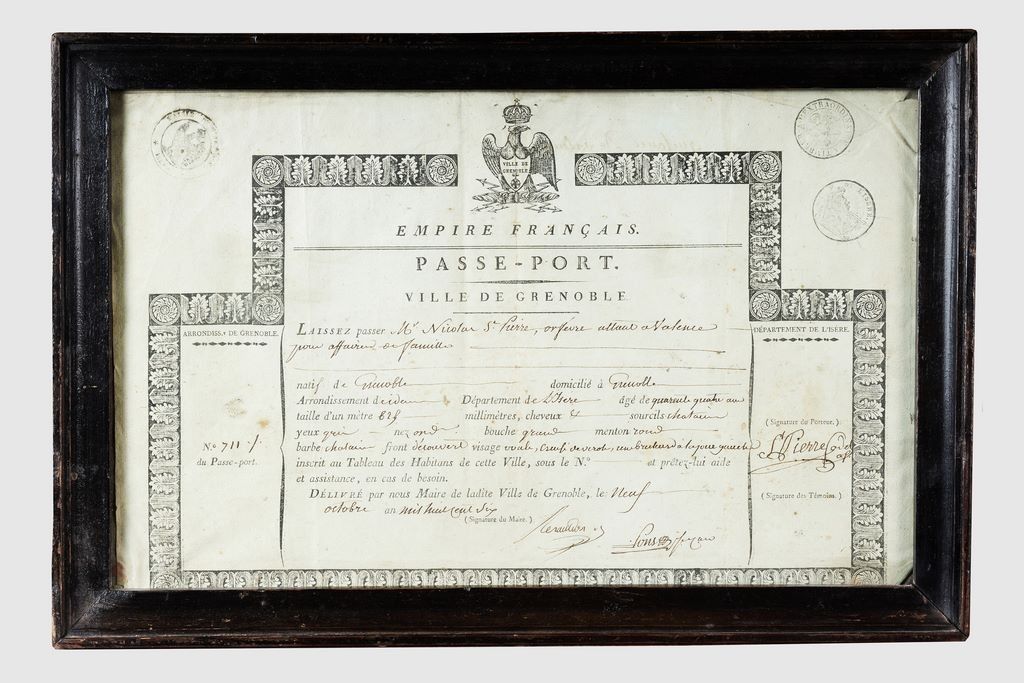 VILLE DE
GRENOBLE
EMPIRE FRANÇAIS.
PASSE-PORT.
VILLE DE GRENOBLE
ARRONDISS.t DE GRENOBLE.
DÉPARTEMENT DE L'ISÈRE.
LAISSEZ passer Mr Nicolas St Pierre, orfevre allant a Valence
pour affaires de famille
natif de Grenoble domicilié à Grenoble
Arrondissement d'idem Département de L'Isere âgé de quarente quatre ans
taille d'un mètre 625 millimètres, cheveux & sourcils chatain
yeux gris nez rond bouche grande menton rond
barbe chatain front découvert visage ovale, creusé de verole, une
inscrit au Tableau des Habitans de cette Ville, sous le N.° et prêtez-lui aide
et assistance, en cas de besoin.
DÉLIVRÉ par nous Maire de ladite Ville de Grenoble, le Neuf
octobre an mil huit cent Six
(Signature du Maire.)
N.° 711
du Passe-port.
(Signature du Porteur.)
St Pierre
(Signature des Témoins.)